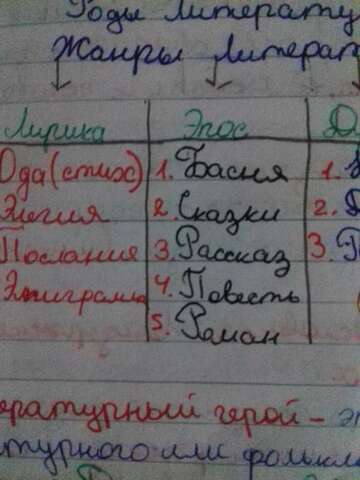 Роды Литерату
Жанры Литерат
Лирика Эпос Д
Ода (стих) 1. Басня 1.
Элегия 2. Сказки 2.
Послания 3. Рассказ 3. П
Эпиграмма 4. Повесть
5. Роман
ературный герой – э
турного или фолькл